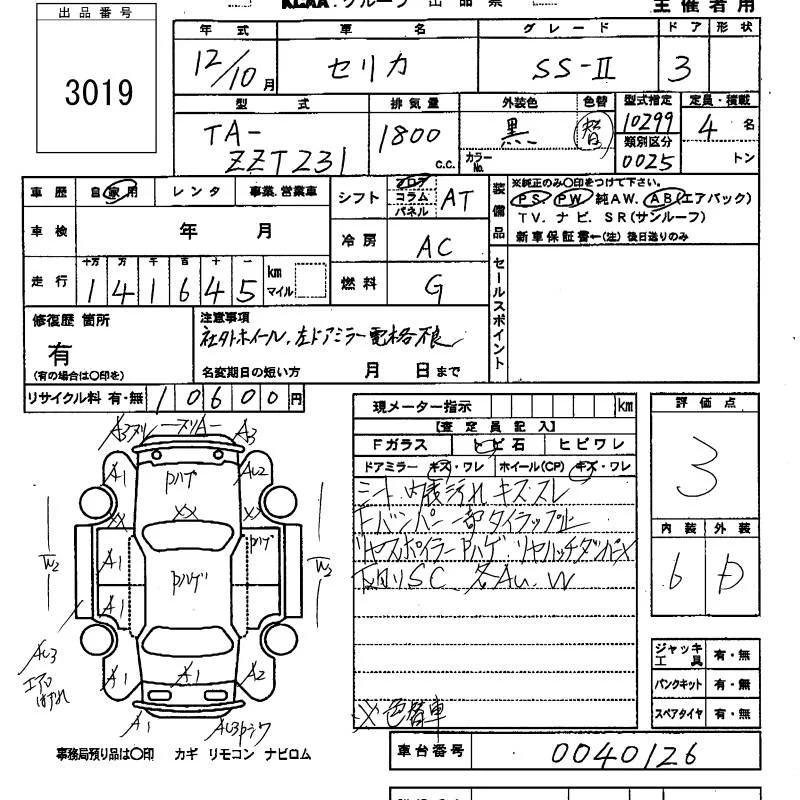 KCAA.グループ 出品票
主催者用
出品番号
3019
年式 車名 グレード ドア 形状
12/10月 セリカ SS-Ⅱ 3
型式 排気量 外装色 色替 型式指定 定員・積載
TA-
ZZT231
1800 c.c.
黒 替
カラーNo.
10299
類別区分
0025
4 名
トン
車歴 自家用 レンタ 事業.営業車
車検 年 月
走行 十万 万 千 百 十 一
141645 km マイル
シフト フロア コラム パネル AT
冷房 AC
燃料 G
装備品
※純正のみ〇印をつけて下さい。
PS PW 純AW. AB(エアバック)
TV. ナビ. SR(サンルーフ)
新車保証書←(注)後日送りのみ
セールスポイント
修復歴 箇所
有
(有の場合は〇印を)
注意事項
社外ホイール、左ドアミラー電格不良
名変期日の短い方 月 日まで
リサイクル料 有・無 10600円
現メーター指示 km
【査定員記入】
Fガラス トビ石 ヒビワレ
ドアミラー キズ・ワレ ホイール(CP) キズ・ワレ
シート、内装汚れ キズ・スレ
Fバンパー一部タイラップ止
リヤスポイラーPハゲ リヤハッチダンパーX
下回りSC 各AU、W
※色替車
評価点
3
内装 外装
6 D
ジャッキ工具 有・無
パンクキット 有・無
スペアタイヤ 有・無
A3 ヌリ ヌリA A3
A1 Pハゲ AU2
XX XX XX
Pハゲ
W2 A1 Pハゲ W2
A1
AU3
エアロ
はずれ
X1 A2
A1 AU3Pシワ
事務局預り品は〇印 カギ リモコン ナビロム
車台番号 0040126